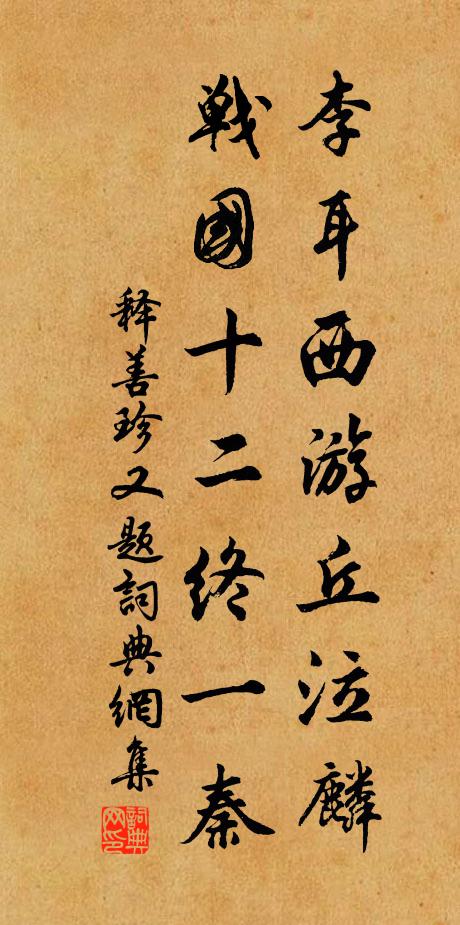 李耳西游丘泣麟
戰國十二終一秦
释善珍又題詞典網集
詞典网印